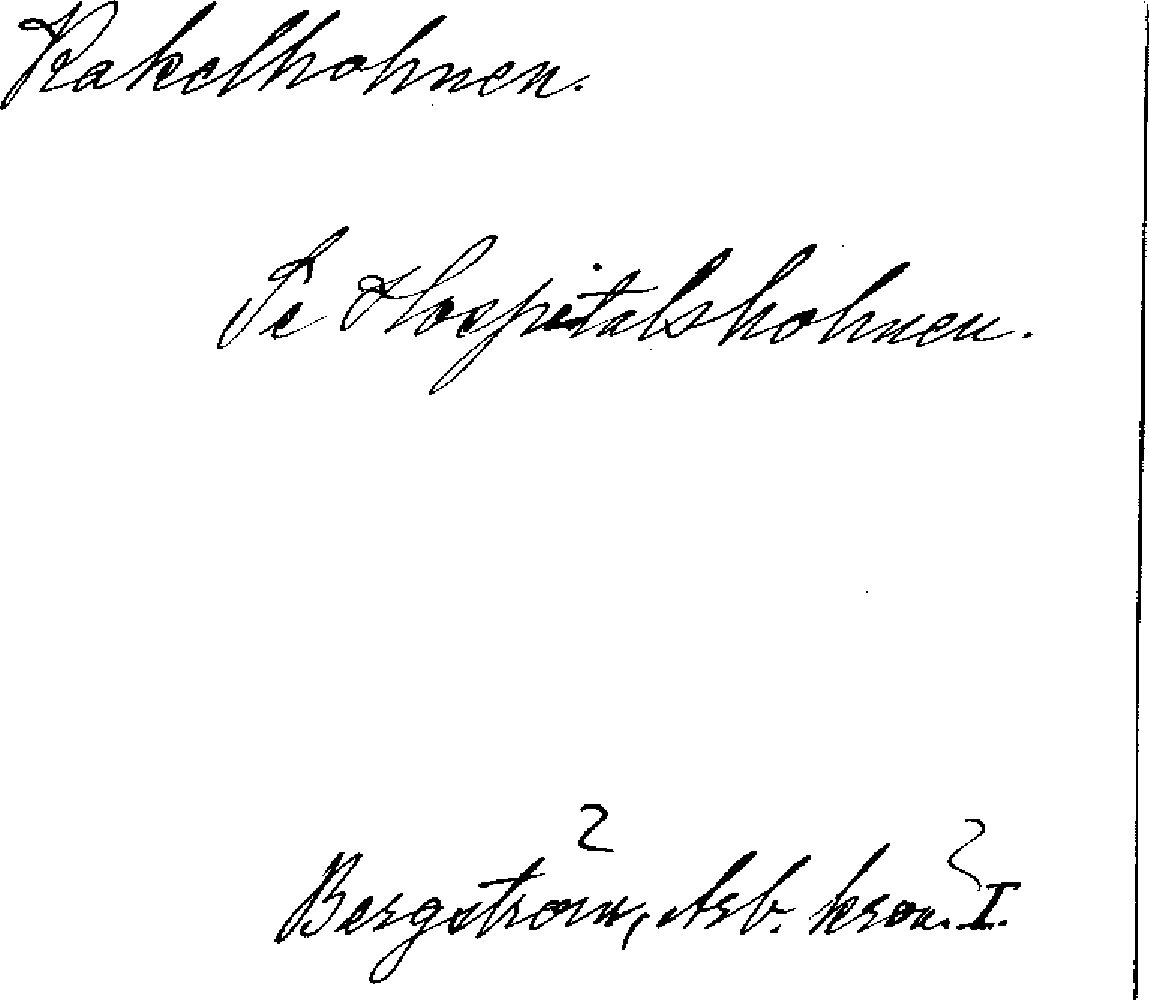 Kakelholmen.
Se Hospitalsholmen.
Bergström, Arb. krön. I.